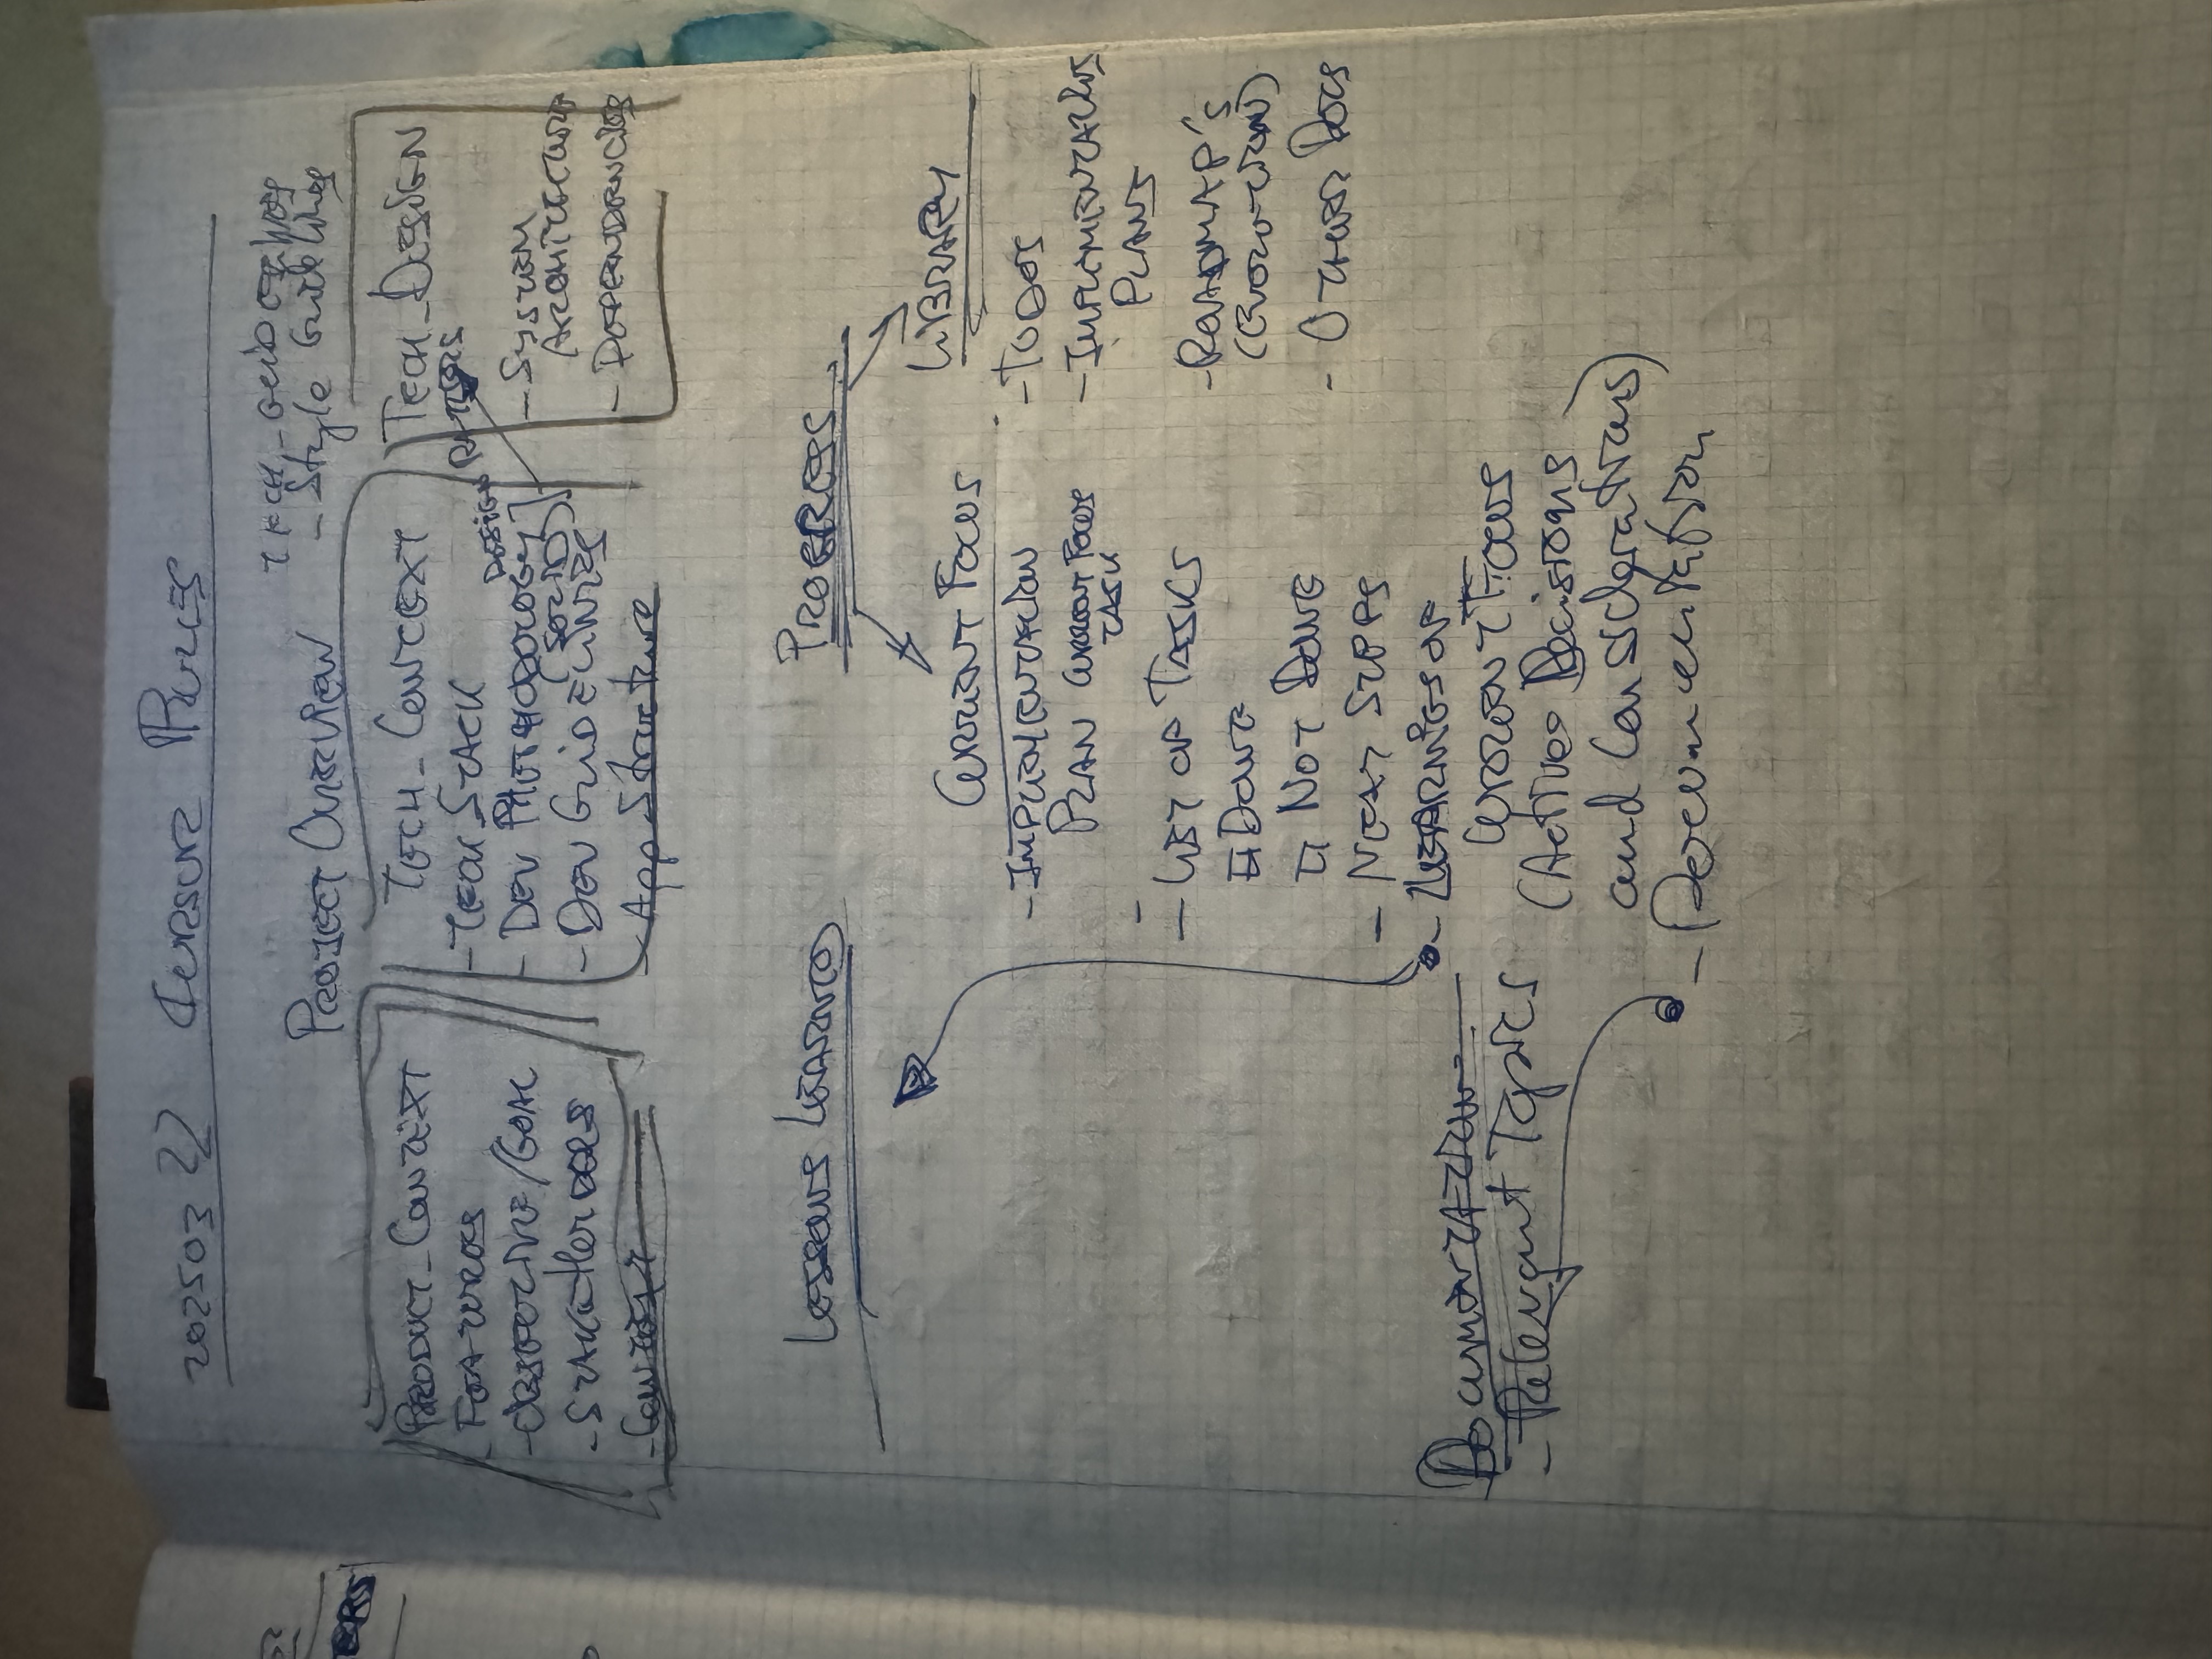 20250322 Cursor Rules
TECH_GUIDELINES
- Style Guidelines
PROJECT OVERVIEW
PRODUCT_CONTEXT
- FEATURES
- OBJECTIVE/GOAL
- STAKEHOLDERS
- CONTEXT
TECH_CONTEXT
- TECH STACK
- DEV METHODOLOGY
(SOLID)
- DEV GUIDELINES
- App Structure
DESIGN PATTERNS
TECH_DESIGN
- SYSTEM
ARCHITECTURE
- DEPENDENCIES
LESSONS LEARNED
PROGRESS
CURRENT FOCUS
- IMPLEMENTATION
PLAN CURRENT FOCUS
TASK
-
- LIST OF TASKS
DONE
NOT DONE
- NEXT STEPS
- LEARNINGS OF
CURRENT FOCUS
(Active Decisions
and Considerations)
- Documentation
LIBRARY
- TODOS
- IMPLEMENTATIONS
PLANS
- ROADMAP'S
(EVOLUTION)
- OTHER DOCS
DOCUMENTATION
- Relevant Topics
ERS